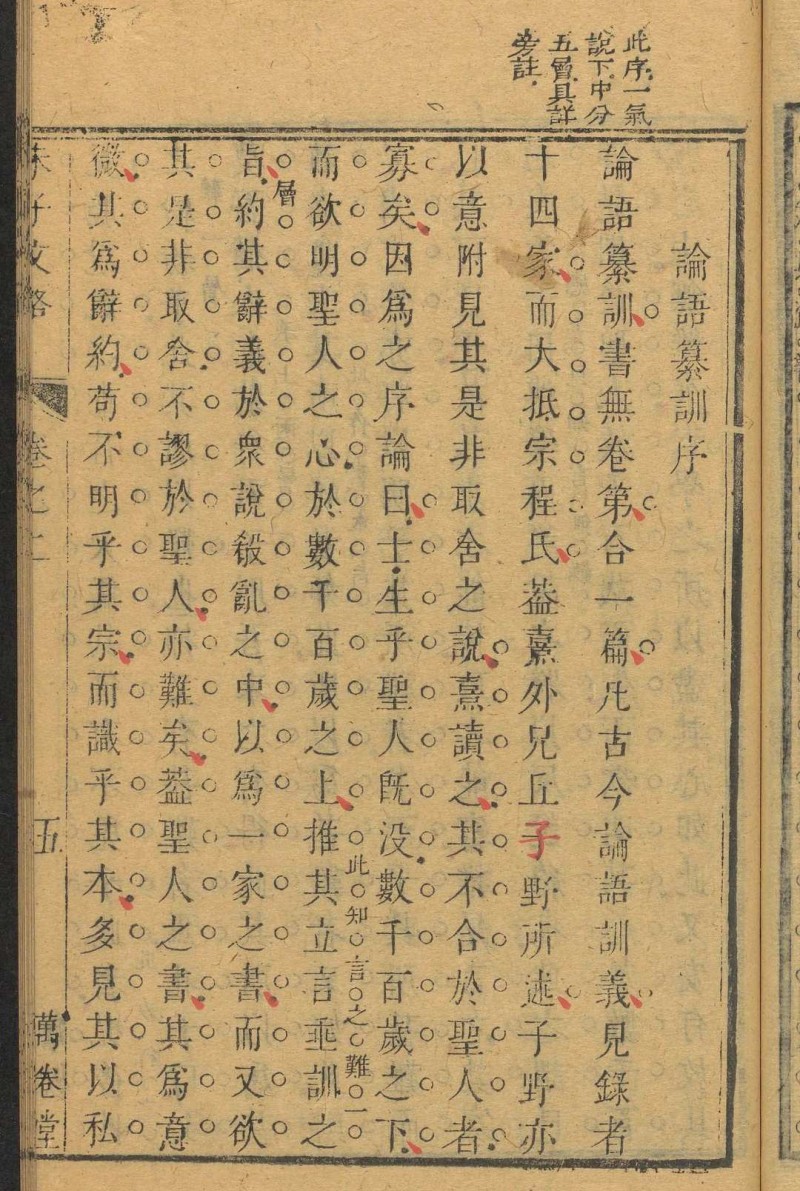 此序一氣
說下中分
五層具詳
旁註
論語纂訓序
論語纂訓書無卷第合一篇凡古今論語訓義見錄者
十四家而大抵宗程氏葢熹外兄丘子野所述子野亦
以意附見其是非取舍之說熹讀之其不合於聖人者
寡矣因爲之序論曰士生乎聖人旣没數千百歲之下
而欲明聖人之心於數千百歲之上推其立言垂訓之
此知言之難一層
旨約其辭義於衆說殽亂之中以爲一家之書而又欲
其是非取舍不謬於聖人亦難矣葢聖人之書其爲意
微其爲辭約苟不明乎其宗而識乎其本多見其以私
朱子文略 卷之上 五 萬卷堂